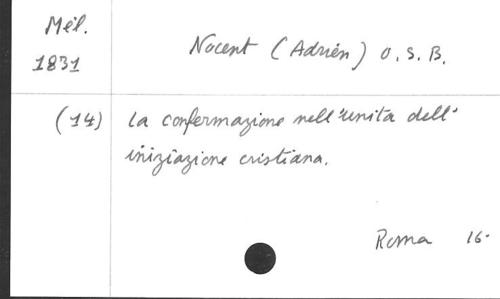 Mél.
1831
Nocent (Adrien) O.S.B.
(14) La confermazione nell'unita dell'
iniziazione cristiana.
Roma 16-